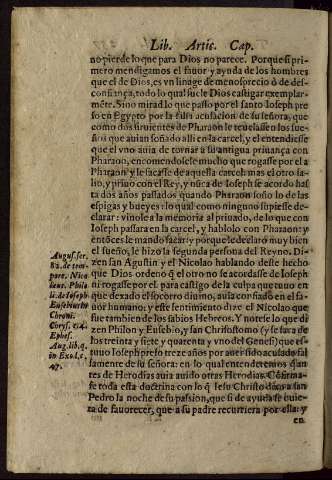 Lib. Artic. Cap.
no pierde lo que para Dios no parece. Porque si pri-
mero mendigamos el fauor y ayuda de los hombres
que el de Dios, es vn linage de menosprecio ò de des-
confiança, todo lo qual suele Dios castigar exemplar-
mẽte. Sino mirad lo que passo por el santo Ioseph pre
so en Egypto por la falsa acusacion de su señora, que
como dos siruientes de Pharaon le reuelassen los sue-
ños que auian soñado alli en la carcel, y el entendiesse
que el vno auia de tornar a su antigua priuança con
Pharaon, encomendosele mucho que rogasse por el a
Pharaon y le sacasse de aquella carcel: mas el otro sa-
lio, y priuo con el Rey, y nũca de Ioseph se acordo has
ta dos años passados quando Pharaon soño lo de las
espigas y bueyes lo qual como ninguno supiesse de-
clarar: vinole a la memoria al priuado, de lo que con
Ioseph passara en la carcel, y hablolo con Pharaon: y
entõces le mando sacar: y porque le declaro muy bien
el sueño, le hizo la segunda persona del Reyno. Di-
zen san Agustin y el Nicolao hablando deste hecho
que Dios ordeno q̃ el otro no se acordasse de Ioseph
ni rogasse por el: para castigo de la culpa que tuuo en
que dexado el socorro diuino, auia confiado en el fa-
uor humano; y este sentimiento dize el Nicolao que
fue tambien de los sabios Hebreos. Y notese de lo que di
zen Philon y Eusebio, y san Chrisostomo (y se saca de
los treinta y siete y quarenta y vno del Genesi) que es-
tuuo Ioseph preso treze años por auer sido acusado fal
samente de su señora: en lo qual entenderemos q̃ an-
tes de Herodias auia auido otras Herodias. Cõfirma-
se toda esta doctrina con lo q̃ Iesu Christo dixo a san
Pedro la noche de su passion, que si de ayuda se quie-
ra de fauorecer, que a su padre recurriera por ella: y
en
August. ser.
82. de tem-
pore. Nico
laus. Philo
li. de Ioseph
Eusebius in
Chroni.
Ephes.
Aug. lib. q.
in Exod. c.
47.